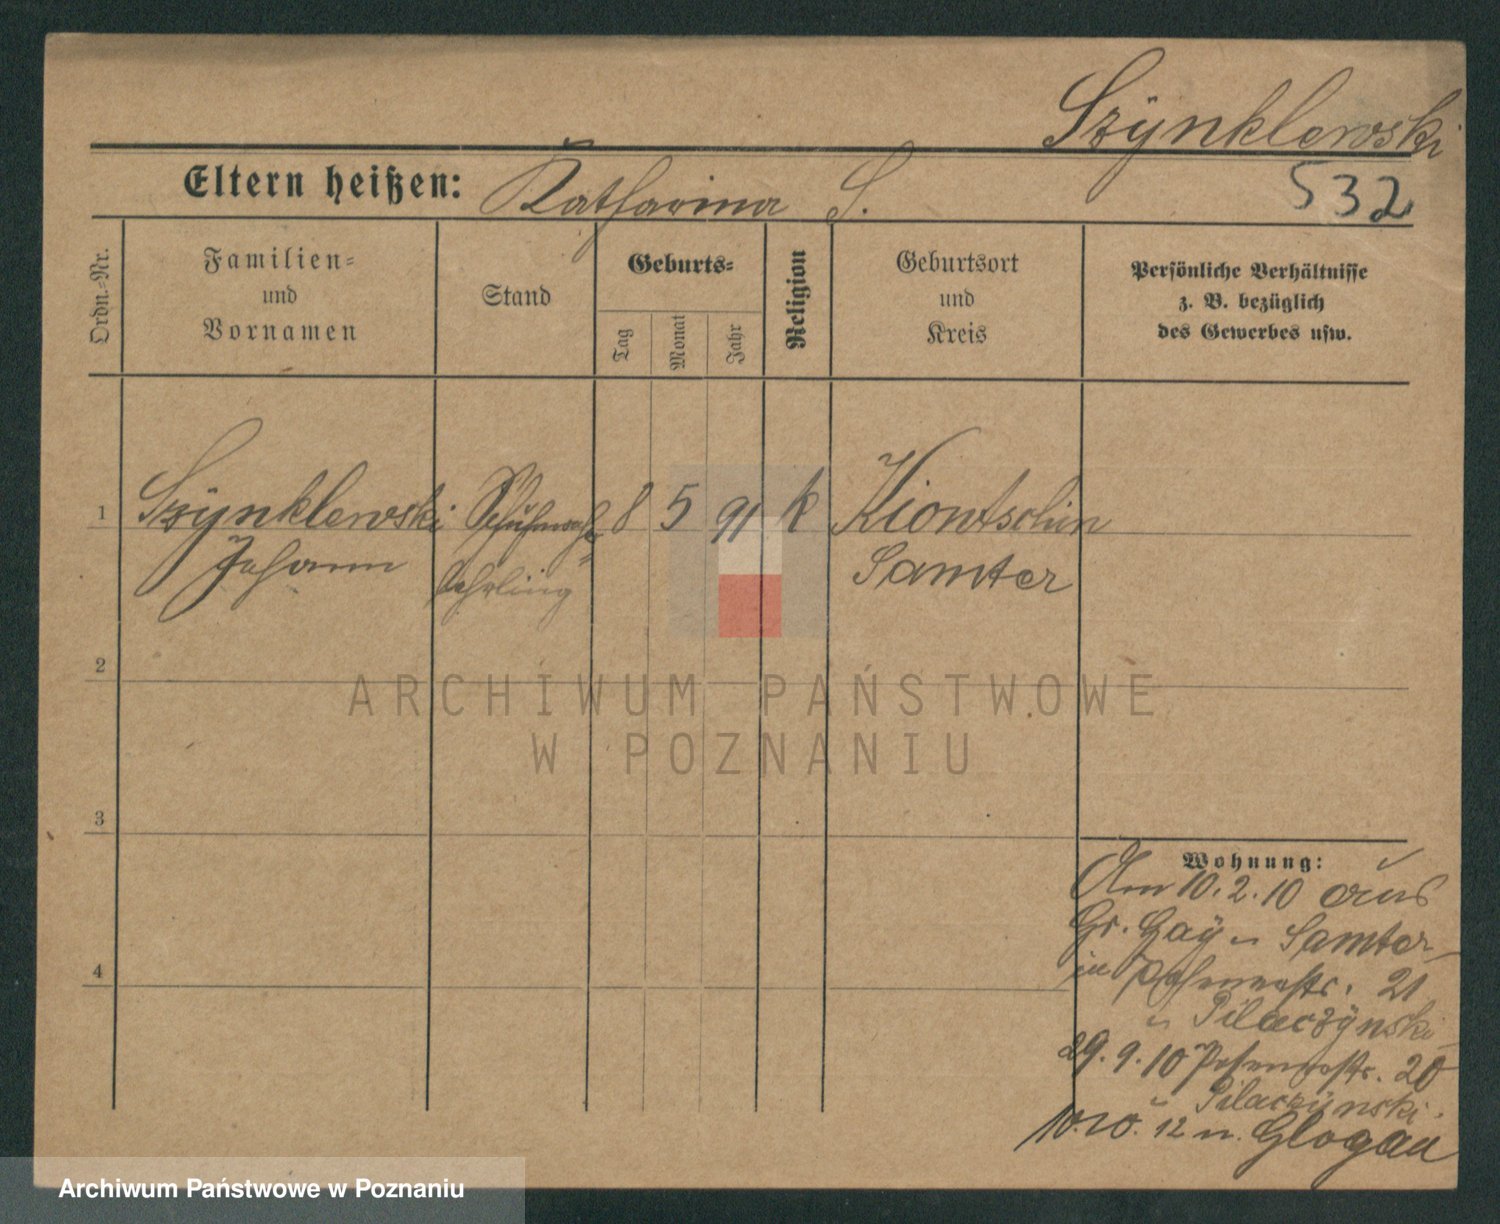 Szÿnklewski
Eltern heißen: Katharina S.
532
Ordn.-Nr.
Familien-
und
Vornamen
Stand
Geburts-
Tag
Monat
Jahr
Religion
Geburtsort
und
Kreis
Persönliche Verhältnisse
z. B. bezüglich
des Gewerbes usw.
1
Szÿnklewski
Johann
Schuhmach
lehrling
8 5 91 k
Kiontschin
Samter
2
ARCHIWUM PAŃSTWOWE
W POZNANIU
3
4
Wohnung:
Am 10.2.10 aus
Gr. Gaÿ n Samter
in Posenerstr. 21
Pilaczÿnski
29.9.10 Posenerstr. 20
Pilaczÿnski.
10.10.12 n. Glogau
Archiwum Państwowe w Poznaniu